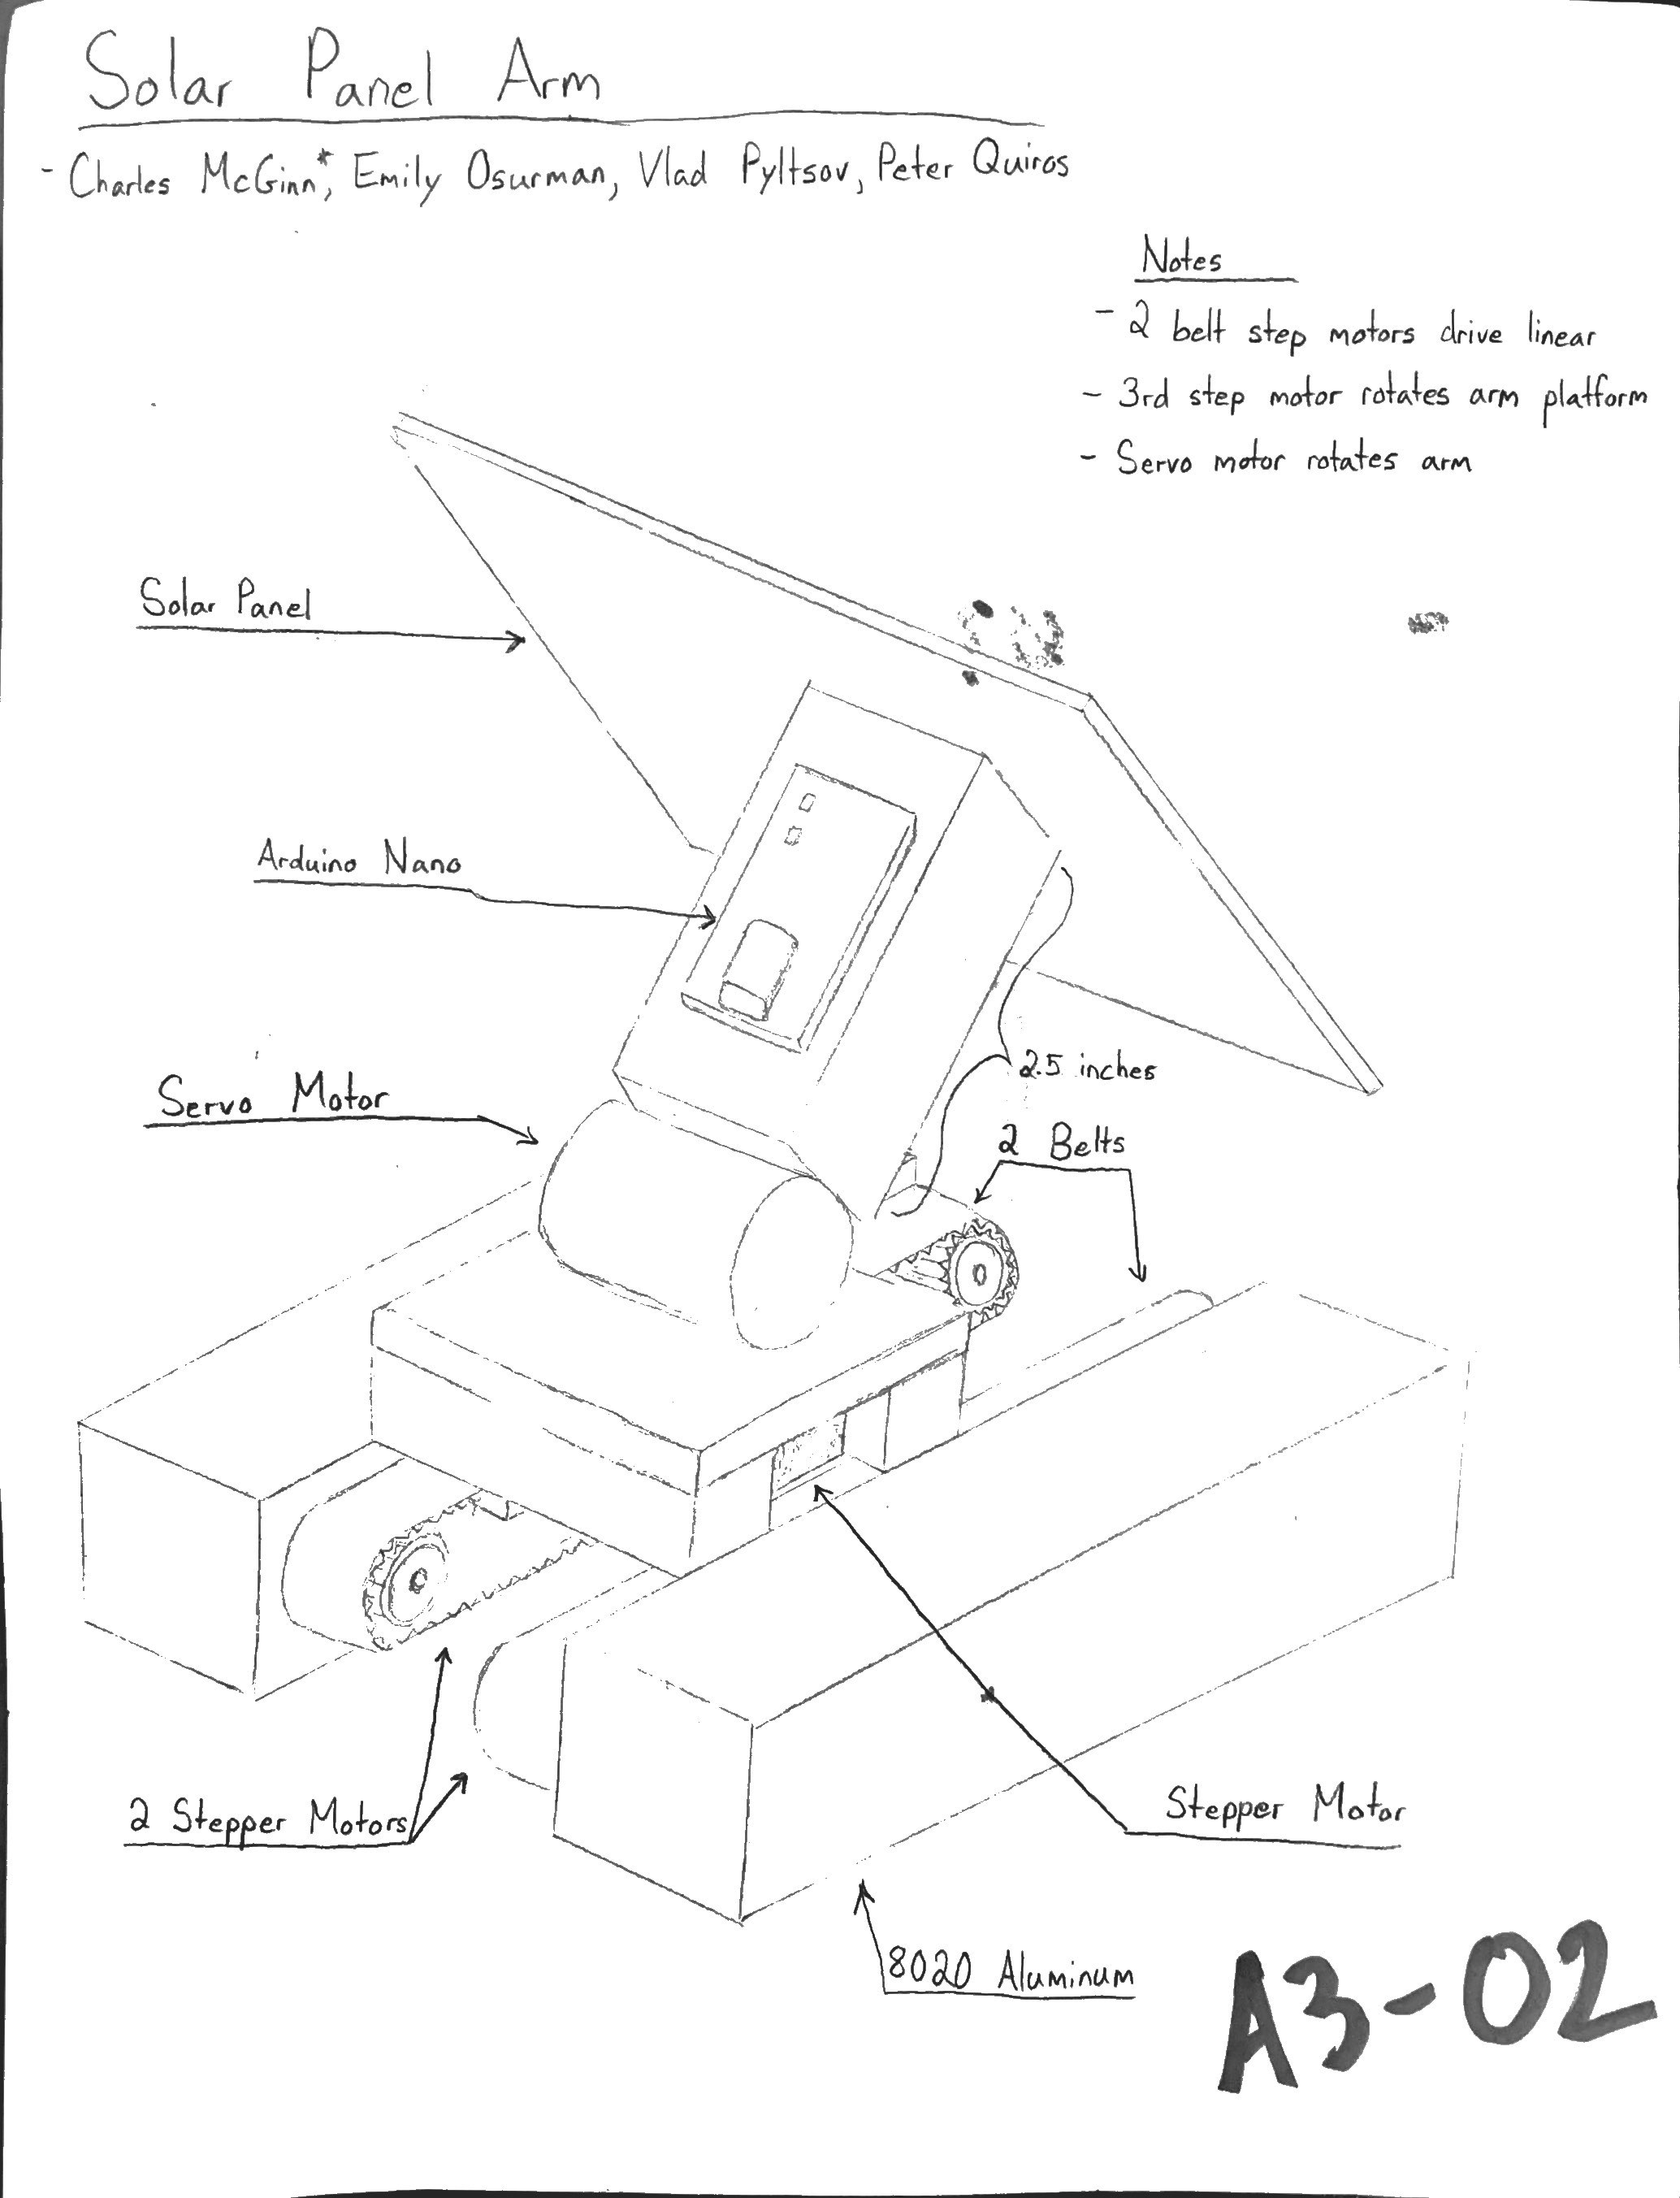 Solar Panel Arm
- Charles McGinn*, Emily Osurman, Vlad Pyltsov, Peter Quiros
Notes
- 2 belt step motors drive linear
- 3rd step motor rotates arm platform
- Servo motor rotates arm
Solar Panel
Arduino Nano
2.5 inches
Servo Motor
2 Belts
2 Stepper Motors
Stepper Motor
8020 Aluminum
A3-02